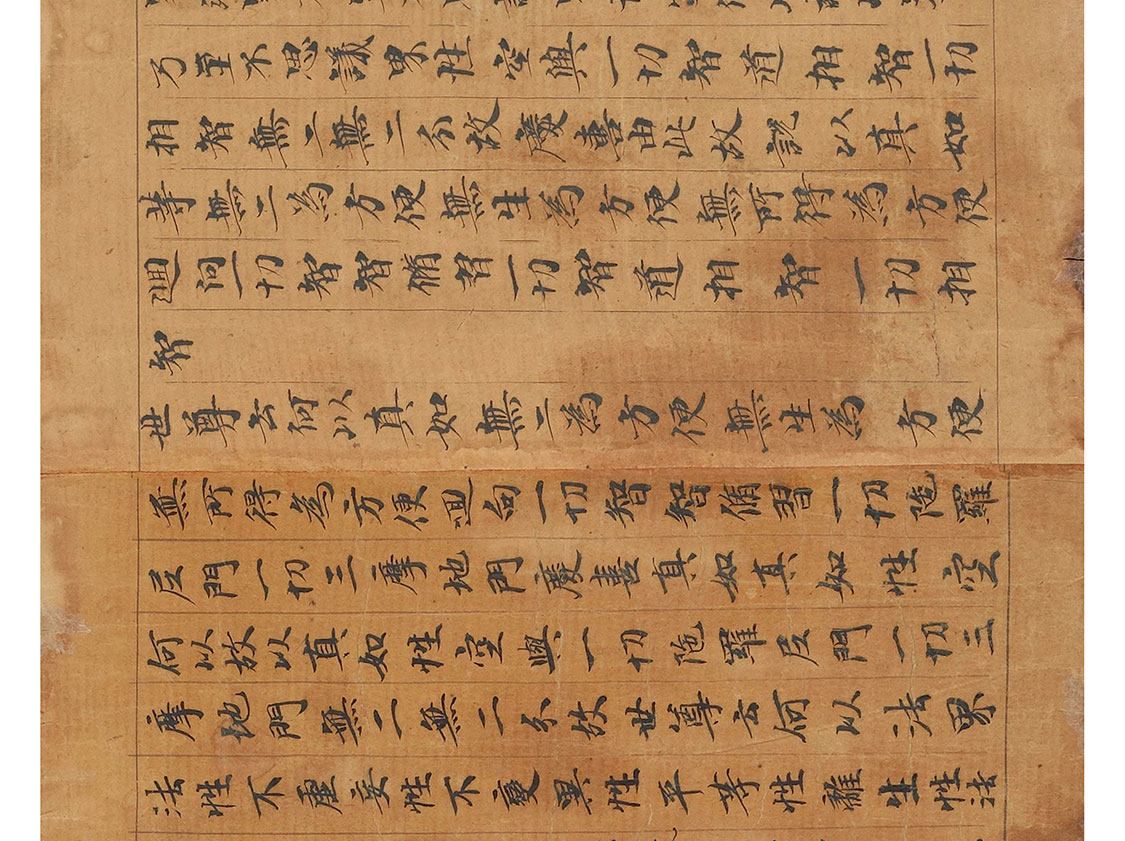 乃至不思議界性空與一切智道相智一切
相智無二無二分故慶喜由此故說以真如
等無二為方便無生為方便無所得為方便
迴向一切智智脩習一切智道相智一切相
智
世尊云何以真如無二為方便無生為方便
無所得為方便迴向一切智智脩習一切陁羅
尼門一切三摩地門慶喜真如真如性空
何以故以真如性空與一切陁羅尼門一切三
摩地門無二無二分故世尊云何以法界
法性不虛妄性不變異性平等性離生性法